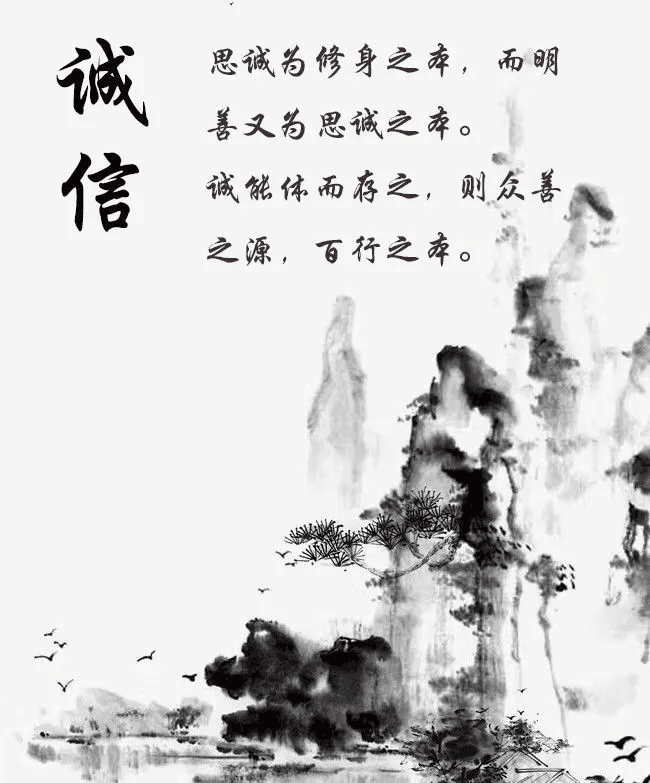 诚信
思诚为修身之本，而明
善又为思诚之本。
诚能体而存之，则众善
之源，百行之本。